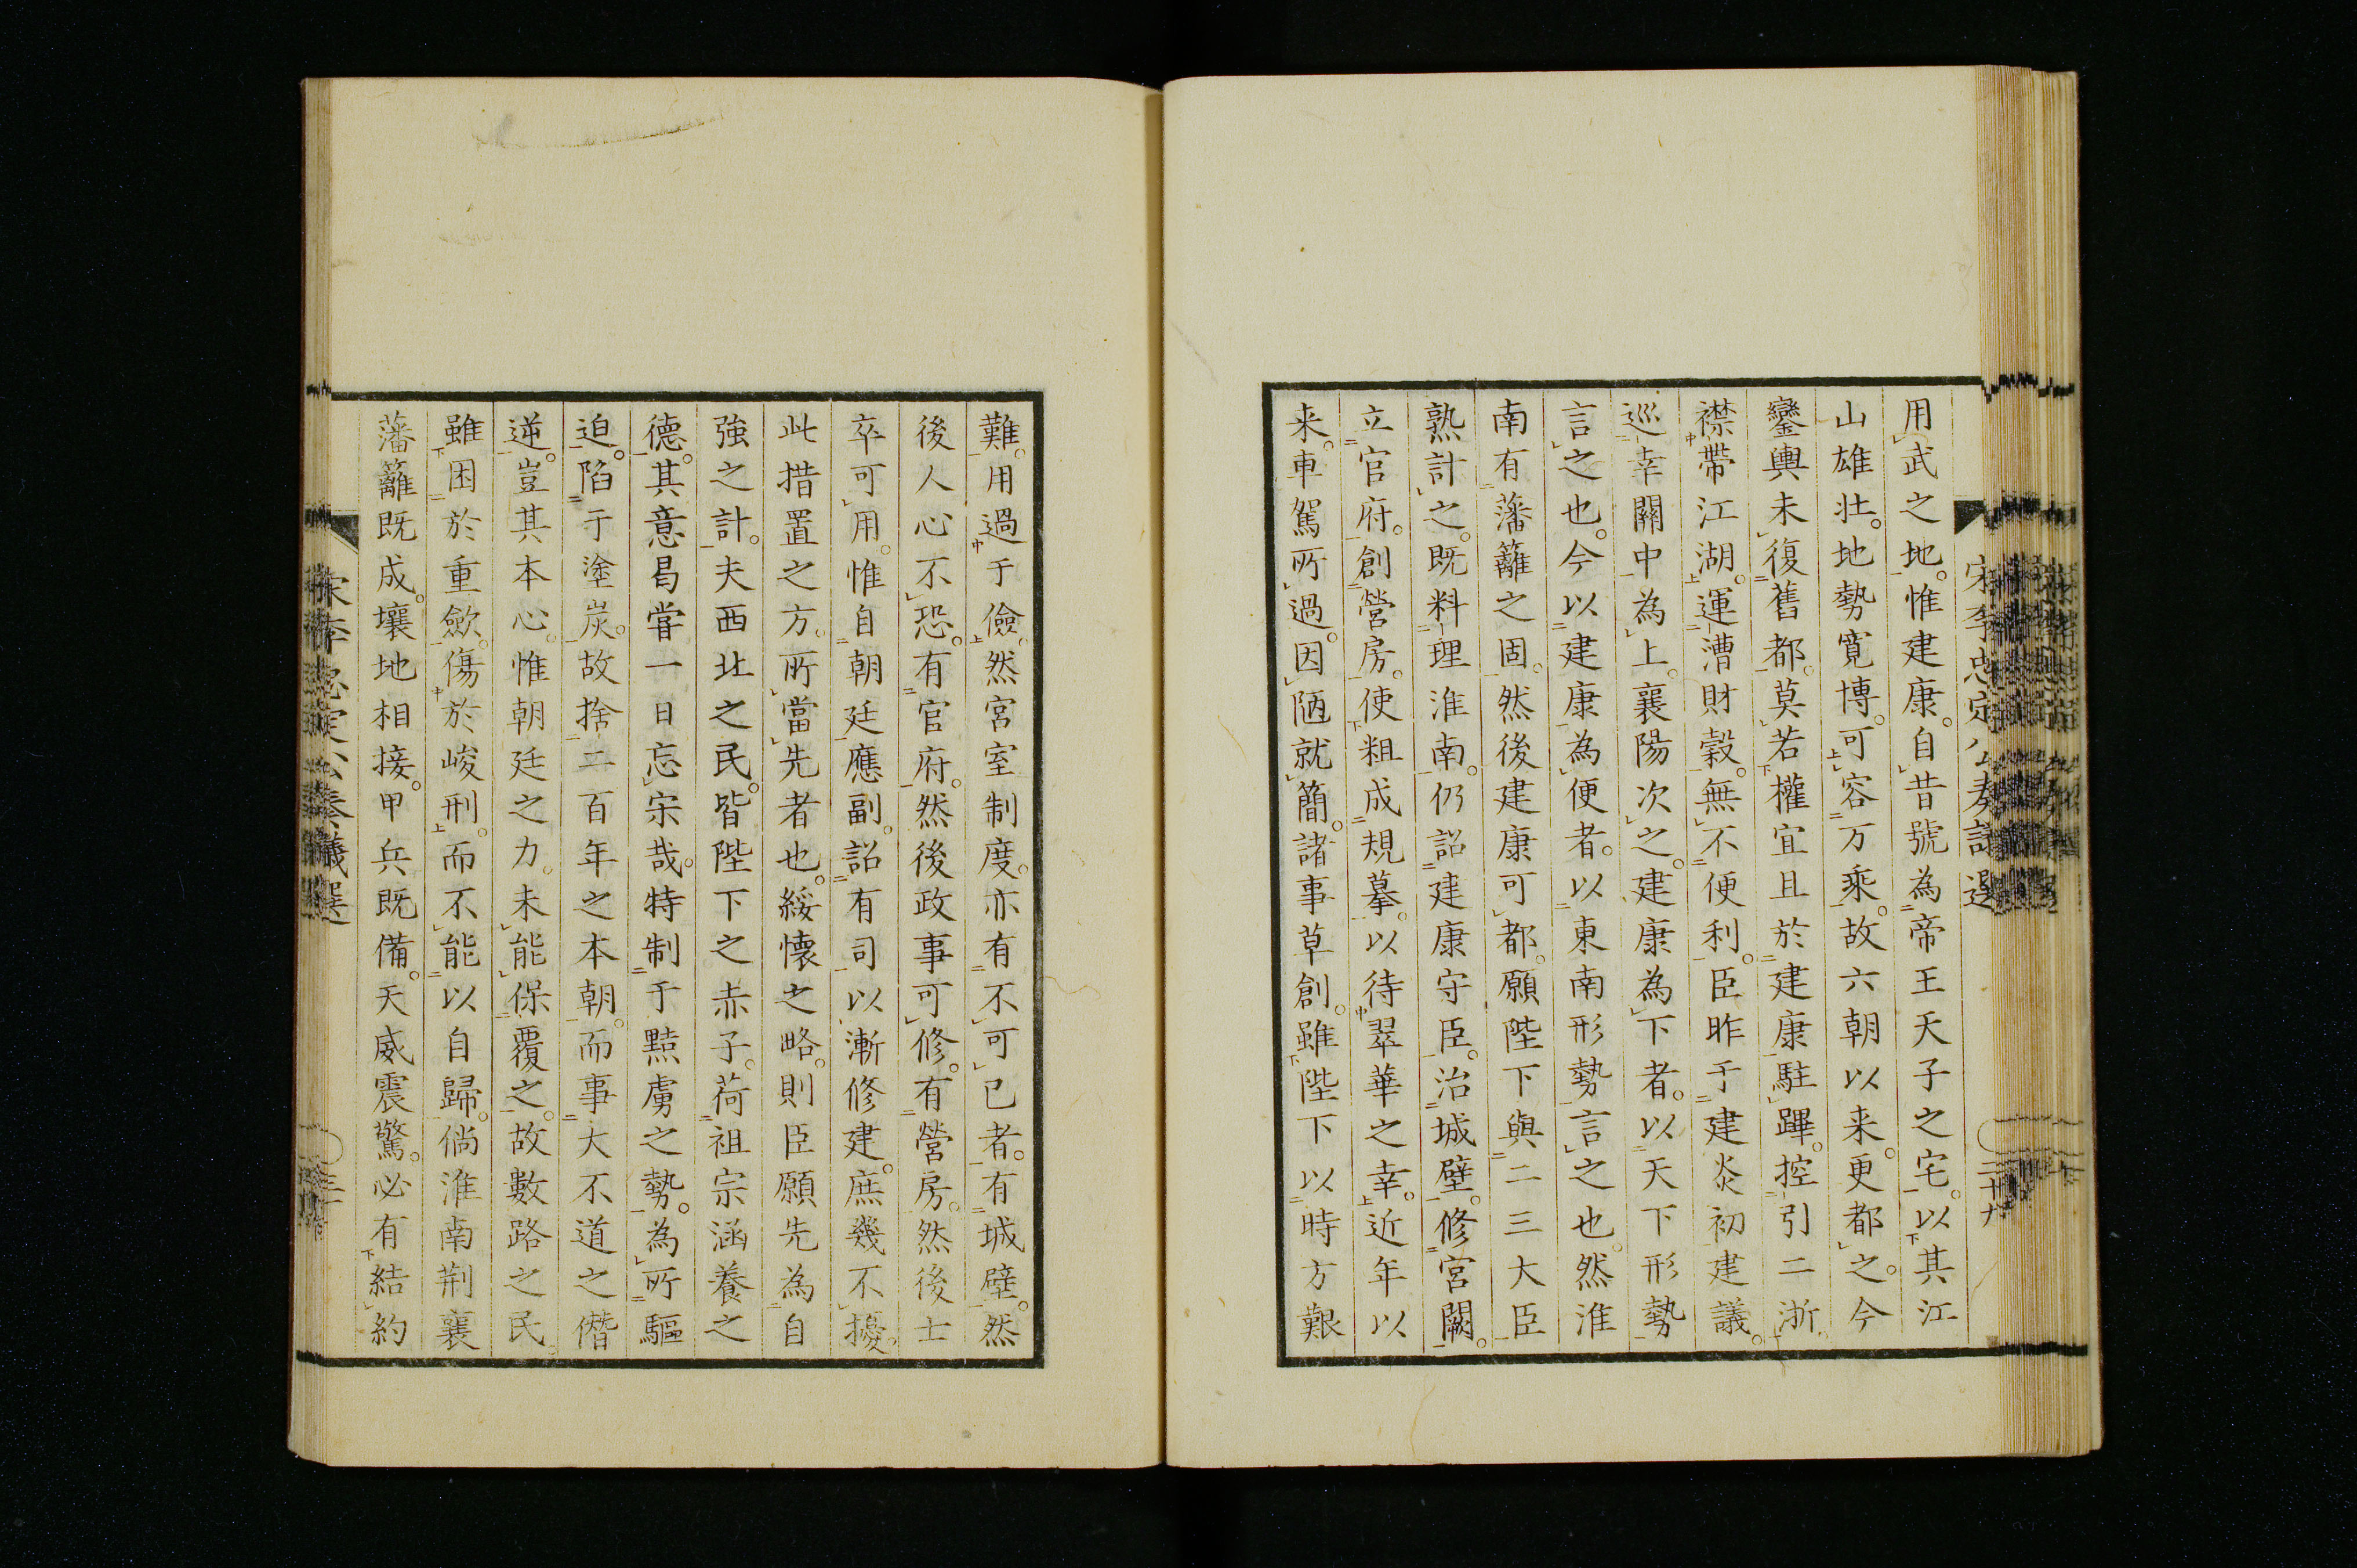 用武之地。惟建康。自昔號為帝王天子之宅。以其江
山雄壯。地勢寬博。可容万乘。故六朝以来。更都之。今
鑾輿未復舊都。莫若權宜且於建康駐蹕。控引二浙。
襟帶江湖。運漕財穀。無不便利。臣昨于建炎初建議。
巡幸關中為上。襄陽次之。建康為下者。以天下形勢
言之也。今以建康為便者。以東南形勢言之也。然淮
南有藩籬之固。然後建康可都。願陛下與二三大臣
熟計之。既料理淮南。仍詔建康守臣。治城壁。修宮闕。
立官府。創營房。使粗成規摹。以待翠華之幸。近年以
来。車駕所過。因陋就簡。諸事草創。雖陛下以時方艱
難。用過于儉。然宮室制度。亦有不可已者。有城壁。然
後人心不恐。有官府。然後政事可修。有營房。然後士
卒可用。惟自朝廷應副。詔有司以漸修建。庶幾不擾。
此措置之方。所當先者也。綏懐之略。則臣願先為自
強之計。夫西北之民。皆陛下之赤子。荷祖宗涵養之
德。其意曷嘗一日忘宋哉。特制于黠虜之勢。為所驅
迫。陷于塗炭。故捨二百年之本朝。而事大不道之僭
逆。豈其本心。惟朝廷之力。未能保覆之。故數路之民。
雖困於重歛。傷於峻刑。而不能以自歸。倘淮南荆襄
藩籬既成。壤地相接。甲兵既備。天威震驚。必有結約